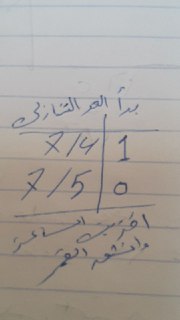 بدأ العد التنازلي
7/4 | 1
7/5 | 0
اقتربت الساعة
وانشق القمر